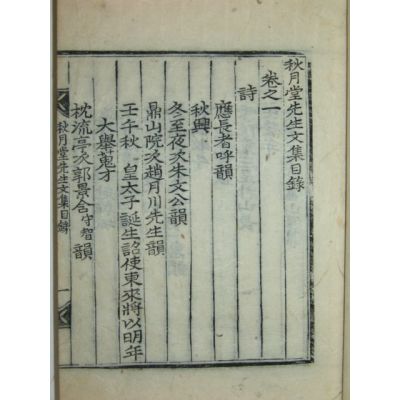 秋月堂先生文集目錄
卷之一
詩
應長者呼韻
秋興
冬至夜次朱文公韻
鼎山院次趙月川先生韻
壬午秋 皇太子誕生詔使東來將以明年
大擧蒐才
枕流亭次郭景舍守智韻
秋月堂先生文集目錄
一